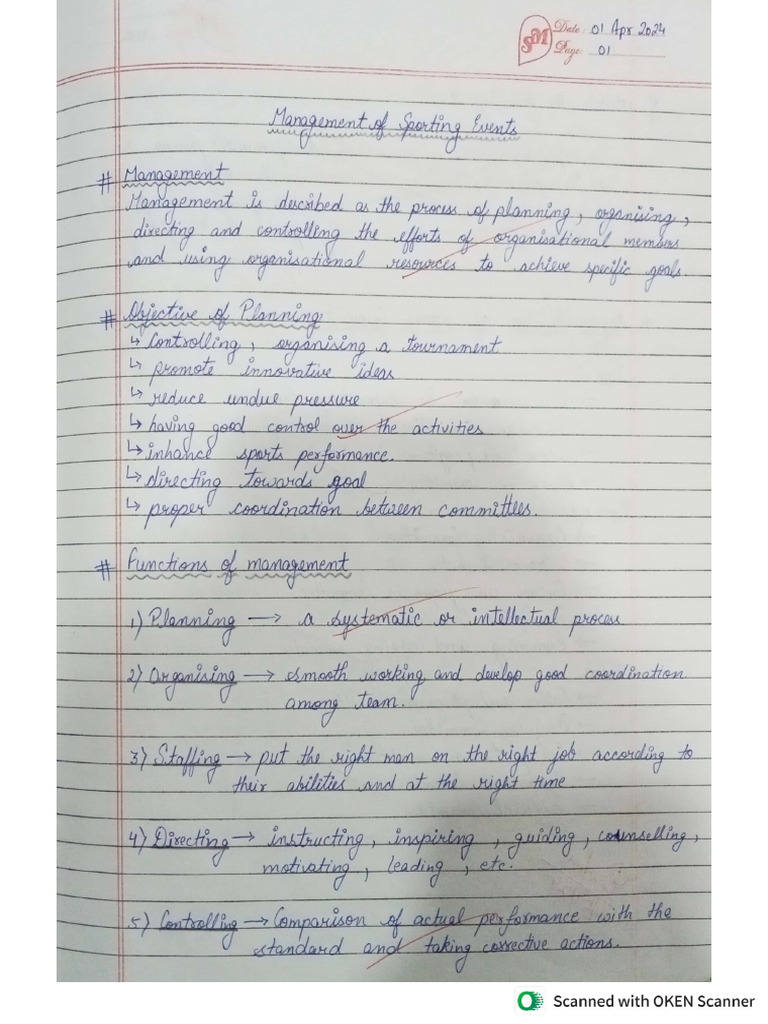 SM
Date: 01 Apr 2024
Page: 01
Management of Sporting Events
# Management
Management is described as the process of planning, organising,
directing and controlling the efforts of organisational members
and using organisational resources to achieve specific goals.
# Objective of Planning
↳ Controlling, organising a tournament
↳ promote innovative ideas
↳ reduce undue pressure
↳ having good control over the activities
↳ inhance sports performance.
↳ directing towards goal
↳ proper coordination between committees.
# Functions of management
1) Planning → a systematic or intellectual process
2) Organising → smooth working and develop good coordination
among team.
3) Staffing → put the right man on the right job according to
their abilities and at the right time
4) Directing → instructing, inspiring, guiding, counselling,
motivating, leading, etc.
5) Controlling → Comparison of actual performance with the
standard and taking corrective actions.
Scanned with OKEN Scanner